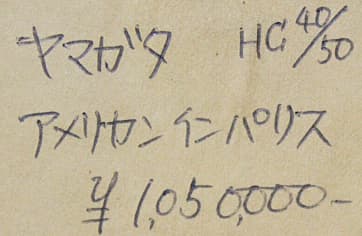 ヤマガタ HC 40/50
アメリカンインパリス
¥1,050,000-